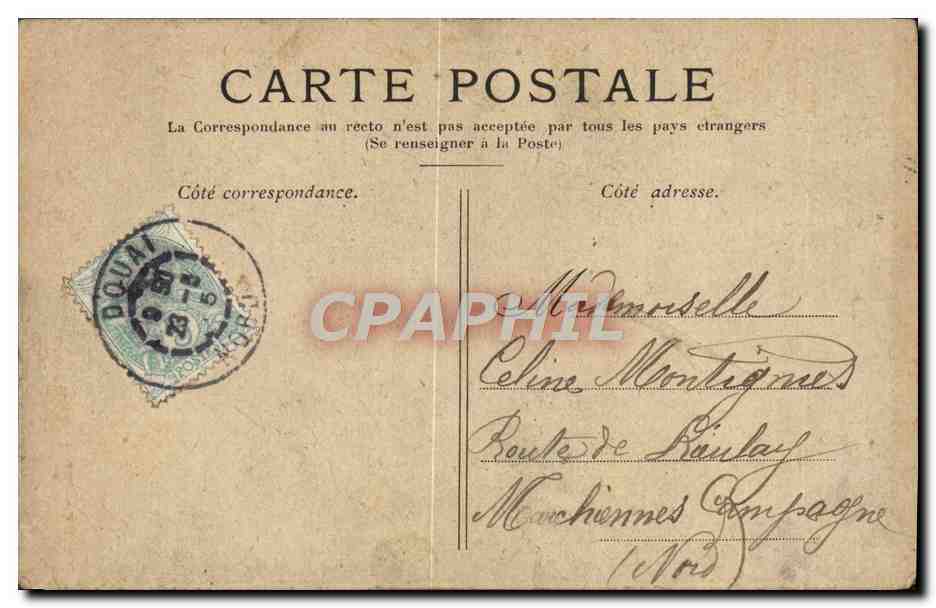 CARTE POSTALE
La Correspondance au recto n'est pas acceptée par tous les pays etrangers
(Se renseigner à la Poste)
Côté correspondance.
Côté adresse.
DOUAI
NORD
23
5
POSTES
CPAPHIL
Mademoiselle
Celine Montignies
Route de
Marchiennes Campagne
(Nord)